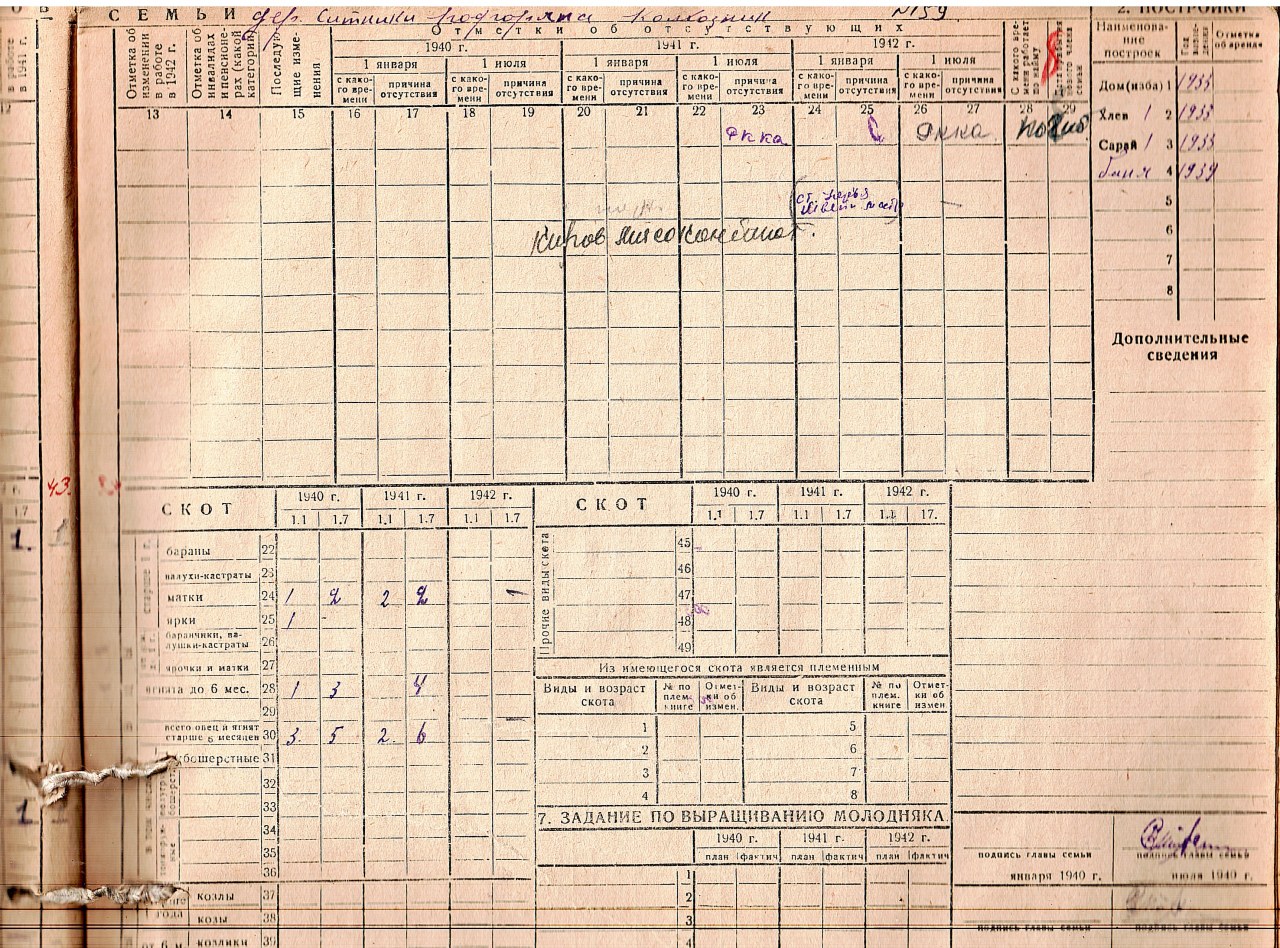 СЕМЬИ дер. Ситники колхозник №159
2. ПОСТРОЙКИ
Отметки об отсутствующих
1940 г. 1941 г. 1942 г.
1 января 1 июля 1 января 1 июля 1 января 1 июля
в работе в 1941 г.
Отметка об изменении в работе в 1942 г.
Отметка об инвалидах и пенсионерах (какой категории)
Последующие изменения
с какого времени причина отсутствия с какого времени причина отсутствия с какого времени причина отсутствия с какого времени причина отсутствия с какого времени причина отсутствия с какого времени причина отсутствия
Наименование построек
Отметка об аренде
12 13 14 15 16 17 18 19 20 21 22 23 24 25 26 27 28 29
РККА РККА погиб
Дом(изба) 1 1935
Хлев 1 2 1935
Сарай 1 3 1935
баня 4 1939
5
6
7
8
Киров мясокомбинат.
Дополнительные сведения
43.
СКОТ
1940 г. 1941 г. 1942 г.
1.1 1.7 1.1 1.7 1.1 1.7
бараны 22
валухи-кастраты 23
матки 24 1 2 2 2 1
ярки 25 1 -
баранчики, валушки-кастраты 26
ярочки и матки 27
ягнята до 6 мес. 28 1 3 4
29
всего овец и ягнят старше 6 месяцев 30 3. 5 2. 6
31
32
33
34
35
36
козлы 37
козы 38
козлики 39
СКОТ
1940 г. 1941 г. 1942 г.
1.1 1.7 1.1 1.7 1.1 17.
Прочие виды скота
45
46
47
48
49
Из имеющегося скота является племенным
Виды и возраст скота № по плем. книге Отметки об измен. Виды и возраст скота № по плем. книге Отметки об измен
1 5
2 6
3 7
4 8
7. ЗАДАНИЕ ПО ВЫРАЩИВАНИЮ МОЛОДНЯКА
1940 г. 1941 г. 1942 г.
план фактич план фактич план фактич
1
2
3
4
подпись главы семьи подпись главы семьи
января 1940 г. июля 1940 г.
подпись главы семьи подпись главы семьи